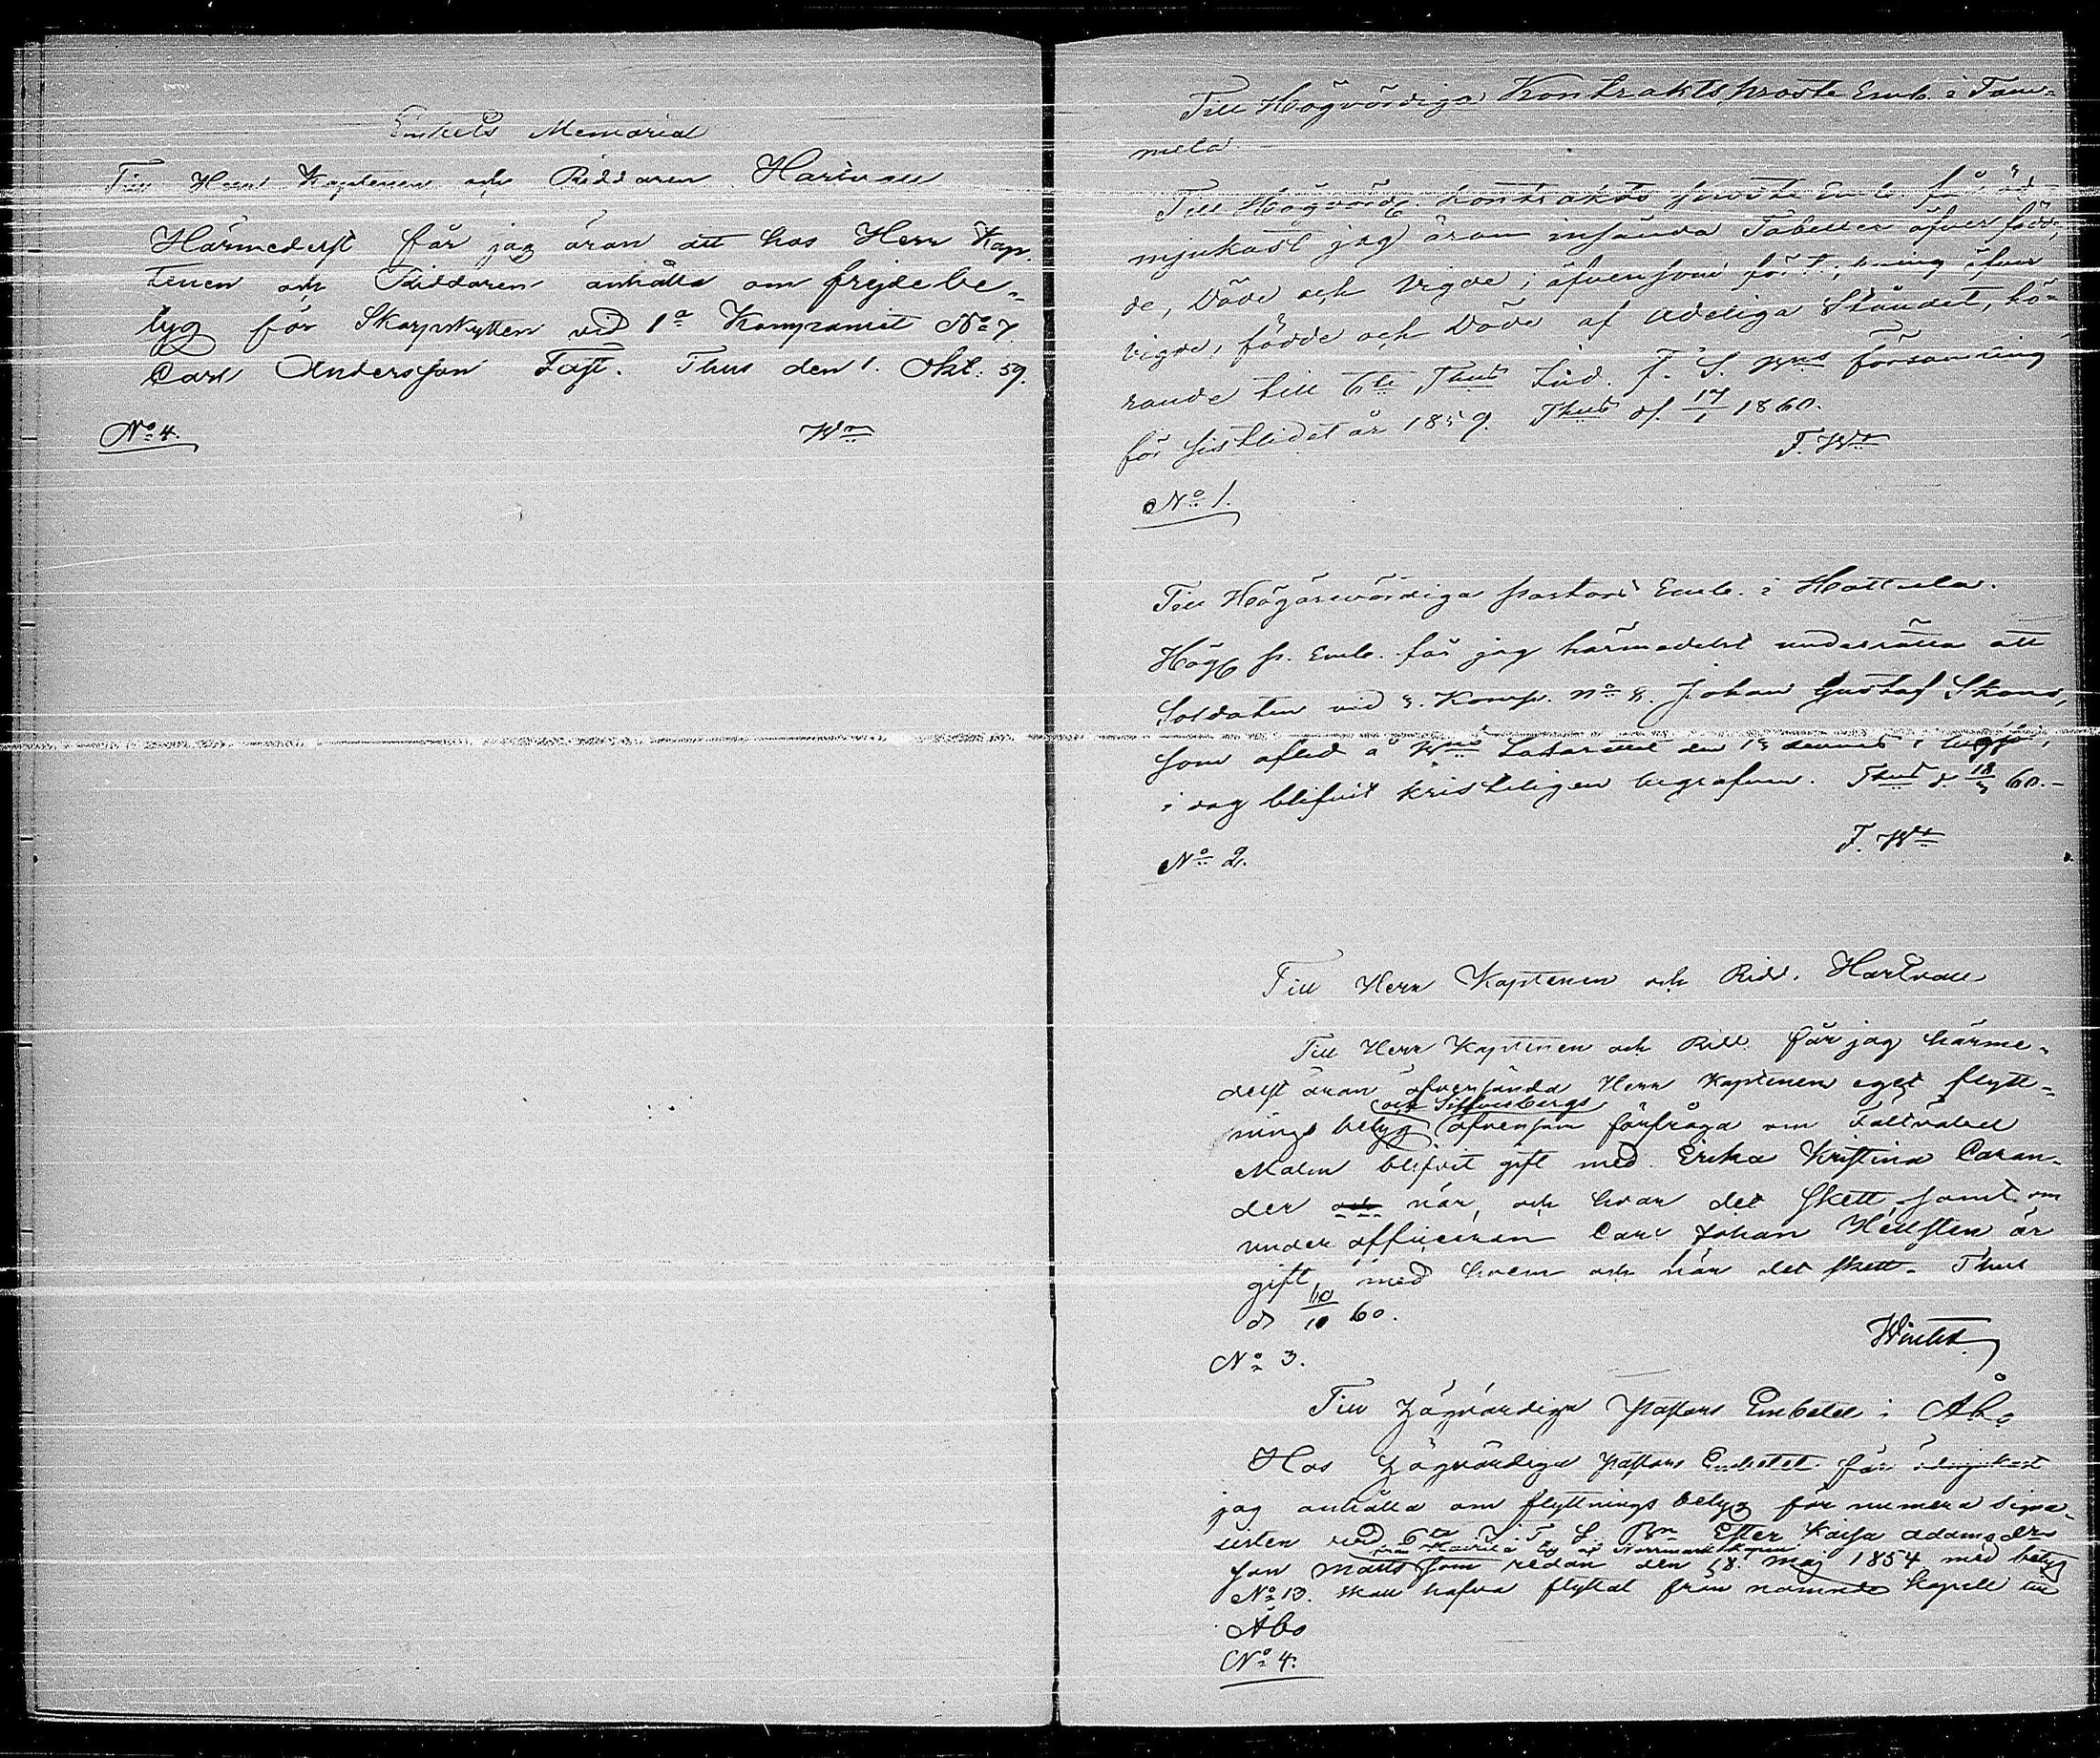 Enkelt Memorial
Till Herr Kaptenen och Riddaren Hartvall
Härmedelst får jag äran att hos Herr Kap-
tenen och Riddaren anhålla om frejdebe-
tyg för Skarpskytten vid 1a Kompaniet No 7
Carl Andersson Fast. Thus den 1. Okt. 59.
No 4. Wm
Till Högvördiga Kontraktsprosts Emb. i Tam-
mela.
Till Högvörd. Kontrakts prosts Emb. får öd-
mjukast jag äran insända Tabeller öfver föd-
de, Döde och Vigde; äfvensom förteckning öfver
vigde, födde och Döde af adeliga Ståndet, hö-
rande till 6te Thus Ind. F. S. Bns församling
för sistlidet år 1859. Thus d. 17/1 1860.
F. Wm
No 1.
Till Högärevördiga Pastors Emb. i Hattula.
Hög P. Emb. får jag härmedelst underrätta att
Soldaten vid 3. Komp. No 8. Johan Gustaf Skans,
som afled å Bns Lasarett den 13 dennes i
i dag blifvit kristeligen begrafven. Thus d. 18/3 60.
F. Wm
No 2.
Till Herr Kaptenen och Ridd. Hartvall
Till Herr Kaptenen och Ridd. får jag härme-
delst äran öfversända Herr Kaptenen eget flytt-
och Silfverbergs
nings betyg äfvensom förfråga om Fältväbel
Malm blifvit gift med Erika Kristina Caran-
der och när, och hvar det skett, samt om
underofficeren Carl Johan Hellsten är
gift, med hvem och när det skett. Thus
d 10/10 60.
Winter
No 3.
Till Högvördiga Pastors Embetet i Åbo
Hos Högvördiga Pastors Embetet får ödmjukast
jag anhålla om flyttnings betyg för numera signa-
listen vid 6te F. S. Bn Ester Kaisa Adams der
från by af Norrmark Kapell
son Matts som redan den 18. Maj 1854 med betyg
No 13. skall hafva flyttat från nämnde kapell till
Åbo
No 4.